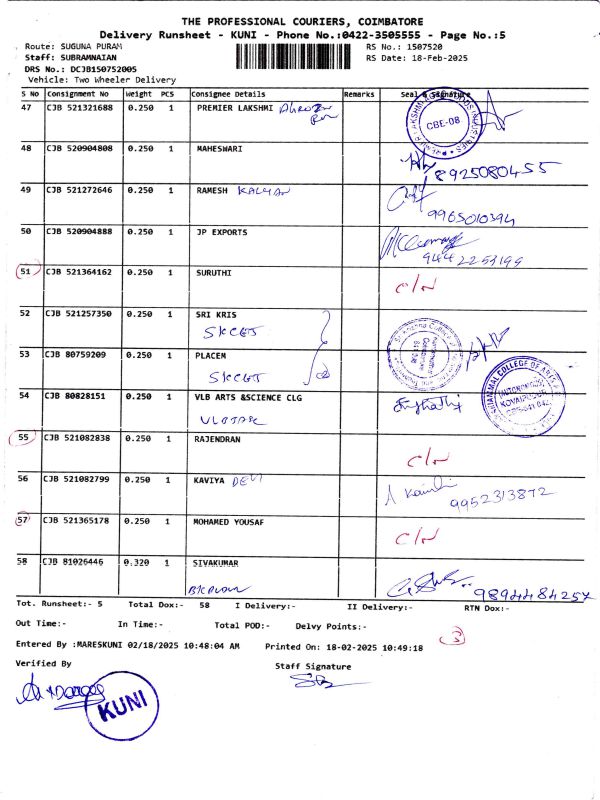 THE PROFESSIONAL COURIERS, COIMBATORE
Delivery Runsheet - KUNI - Phone No.:0422-3505555 - Page No.:5
Route: SUGUNA PURAM RS No.: 1507520
Staff: SUBRAMNAIAN RS Date: 18-Feb-2025
DRS No.: DCJB150752005
Vehicle: Two Wheeler Delivery
S No Consignment No Weight PCS Consignee Details Remarks Seal & Signature
47 CJB 521321688 0.250 1 PREMIER LAKSHMI
CBE-08
48 CJB 520904808 0.250 1 MAHESWARI
8925080455
49 CJB 521272646 0.250 1 RAMESH KALYAN
9965010394
50 CJB 520904888 0.250 1 JP EXPORTS
9442253199
51 CJB 521364162 0.250 1 SURUTHI
C/N
52 CJB 521257350 0.250 1 SRI KRIS
SKCET
53 CJB 80759209 0.250 1 PLACEM
SKCET
54 CJB 80828151 0.250 1 VLB ARTS &SCIENCE CLG
55 CJB 521082838 0.250 1 RAJENDRAN
C/N
56 CJB 521082799 0.250 1 KAVIYA DEVI
9952313872
57 CJB 521365178 0.250 1 MOHAMED YOUSAF
C/N
58 CJB 81026446 0.320 1 SIVAKUMAR
9894484257
Tot. Runsheet:- 5 Total Dox:- 58 I Delivery:- II Delivery:- RTN Dox:-
Out Time:- In Time:- Total POD:- Delvy Points:-
3
Entered By :MARESKUNI 02/18/2025 10:48:04 AM Printed On: 18-02-2025 10:49:18
Verified By Staff Signature
KUNI